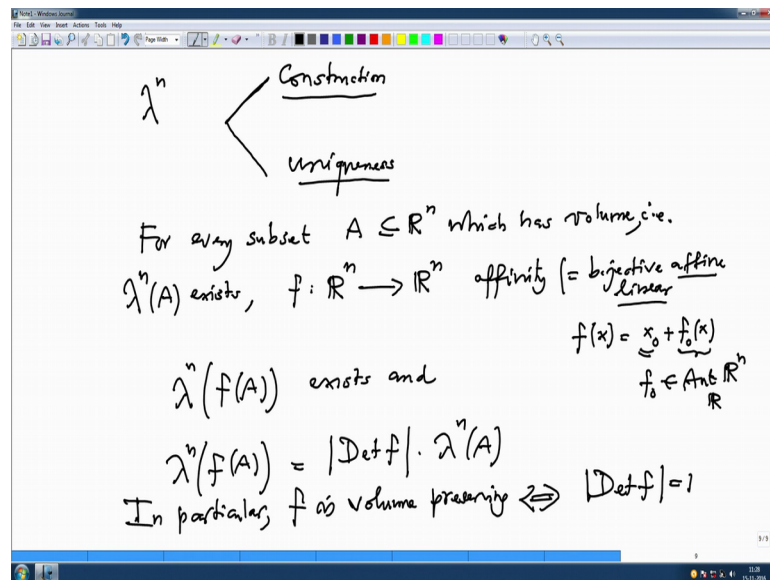 Note1 - Windows Journal
File Edit View Insert Actions Tools Help
Page Width
λⁿ
Construction
Uniqueness
For every subset A ⊆ ℝⁿ which has volume, i.e.
λⁿ(A) exists, f : ℝⁿ → ℝⁿ affinity (= bijective affine
linear
f(x) = x₀ + f₀(x)
f₀ ∈ Aut_ℝ ℝⁿ
λⁿ(f(A)) exists and
λⁿ(f(A)) = |Det f| · λⁿ(A)
In particular, f is volume preserving ⇔ |Det f| = 1
9/9
9
11:28
15-11-2016